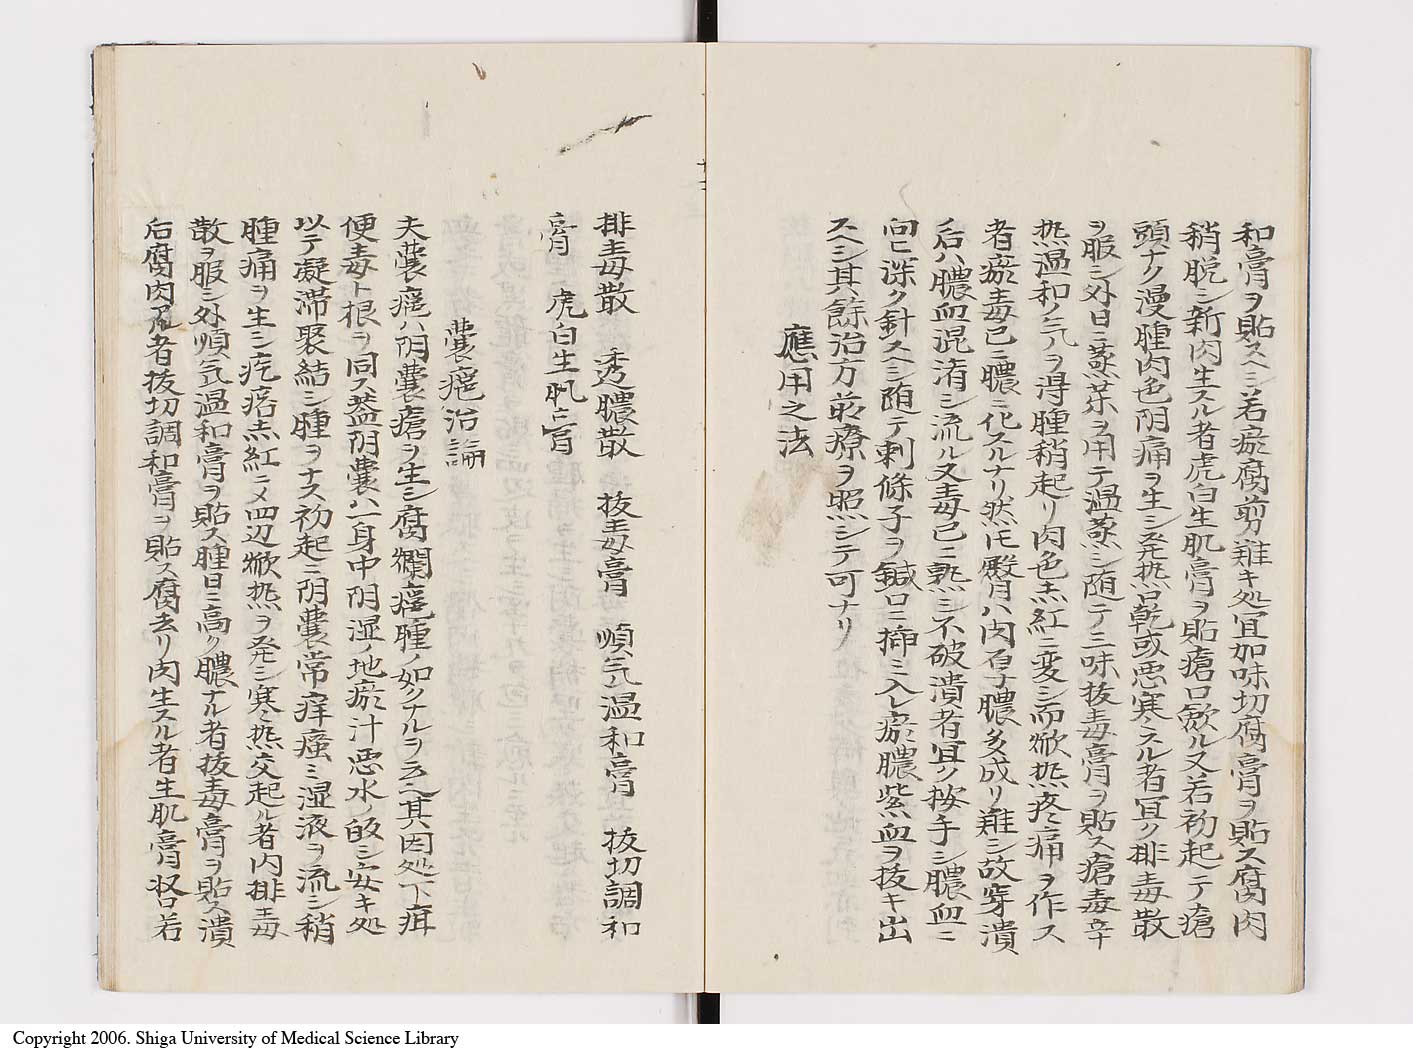 和膏ヲ貼スヘシ若瘀腐剪難キ処冝加味切腐膏ヲ貼ス腐肉
稍脱シ新肉生スル者虎白生肌膏ヲ貼瘡口斂ル又若初起テ瘡
頭ナク漫腫肉色阴痛ヲ生シ発热口乾或悪寒スル者冝ク排毒散
ヲ服シ外日ニ蒸茶ヲ用テ温蒸シ随テ二味抜毒膏ヲ貼ス瘡毒
热温和ノ气ヲ得腫稍起リ肉色赤紅ニ変シ而焮热疼痛ヲ作ス
者瘀毒已ニ膿ニ化スルナリ然𪜈臀ハ肉厚膿多成リ難シ故穿潰
后ハ膿血混淆シ流ル又毒已ニ熟シ不破潰者冝ク按手シ膿血ニ
向ヒ深ク針スヘシ随テ刺條子ヲ鍼口ニ揷ミ入レ瘀膿紫血ヲ抜キ出
スヘシ其餘治方前療ヲ照シテ可ナリ
應用之法
排毒散 透膿散 抜毒膏 順气温和膏 抜切調和
膏 虎白生肌膏
囊癰治論
夫囊癰ハ阴囊瘡ヲ生シ腐爛癰腫ノ如クナルヲ云其因処下疳
便毒ト根ヲ同ス盖阴囊ハ一身中阴湿ノ地瘀汁悪水ノ皈シ安キ処
以テ凝滞聚結シ腫ヲナス初起ニ阴囊常痒瘙ミ湿液ヲ流シ稍
腫痛ヲ生シ疙瘩赤紅ニメ四辺焮热ヲ発シ寒热交起ル者内排毒
散ヲ服シ外順气温和膏ヲ貼ス腫日ニ高ク膿ナル者抜毒膏ヲ貼ス潰
后腐肉アル者抜切調和膏ヲ貼ス腐去リ肉生スル者生肌膏収口若